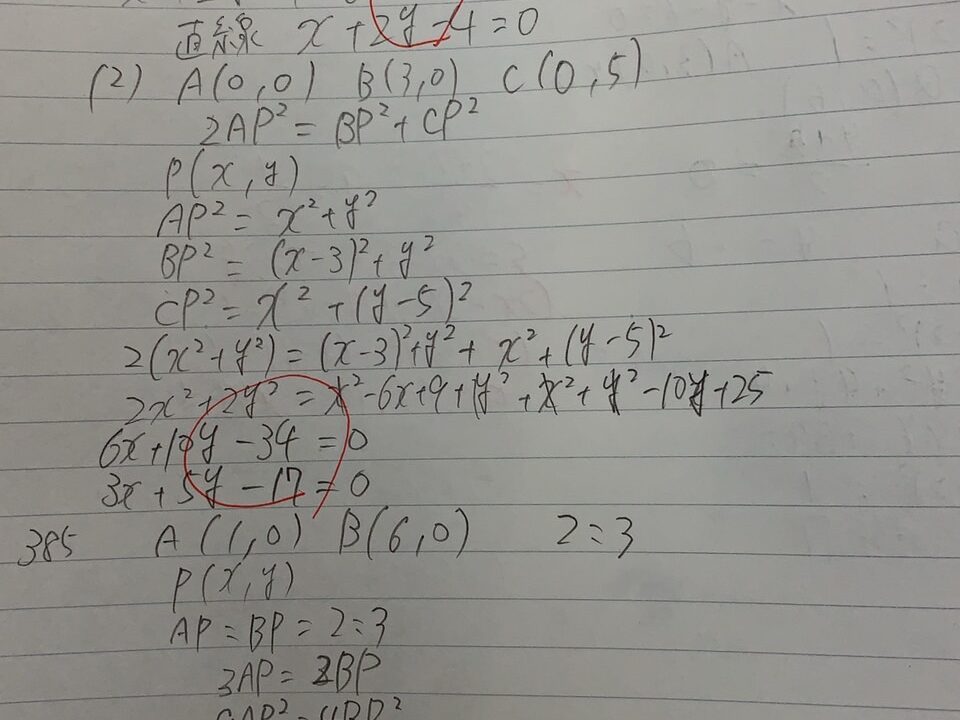 直線 x+2y-4=0
(2) A(0,0) B(3,0) C(0,5)
2AP²=BP²+CP²
P(x,y)
AP²=x²+y²
BP²=(x-3)²+y²
CP²=x²+(y-5)²
2(x²+y²)=(x-3)²+y²+x²+(y-5)²
2x²+2y²=x²-6x+9+y²+x²+y²-10y+25
6x+10y-34=0
3x+5y-17=0
385 A(1,0) B(6,0) 2:3
P(x,y)
AP:BP=2:3
3AP=2BP
9AP²=4BP²